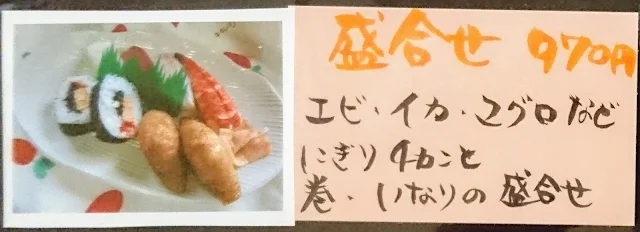 盛合せ 970円
エビ・イカ・マグロなど
にぎり4カンと
巻・いなりの盛合せ